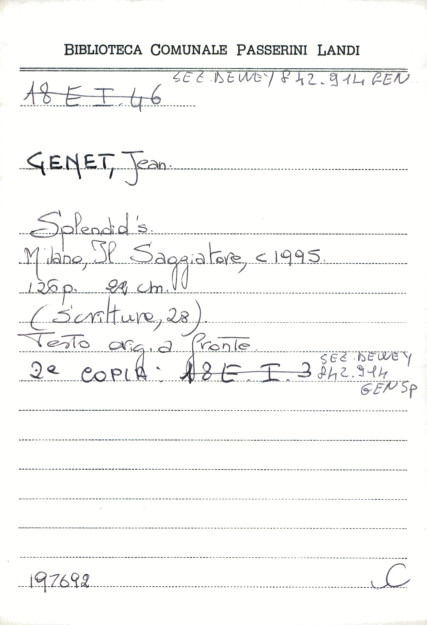 BIBLIOTECA COMUNALE PASSERINI LANDI
SEZ. DEWEY 842.914 GEN
18 E I. 46
GENET, Jean.
Splendid's.
Milano, Il Saggiatore, c1995.
126p. cm.
(Scritture, 28).
Testo orig. a fronte.
2a COPIA: 18 E. I. 3 SEZ. DEWEY
842.914
GEN Sp
197692 C